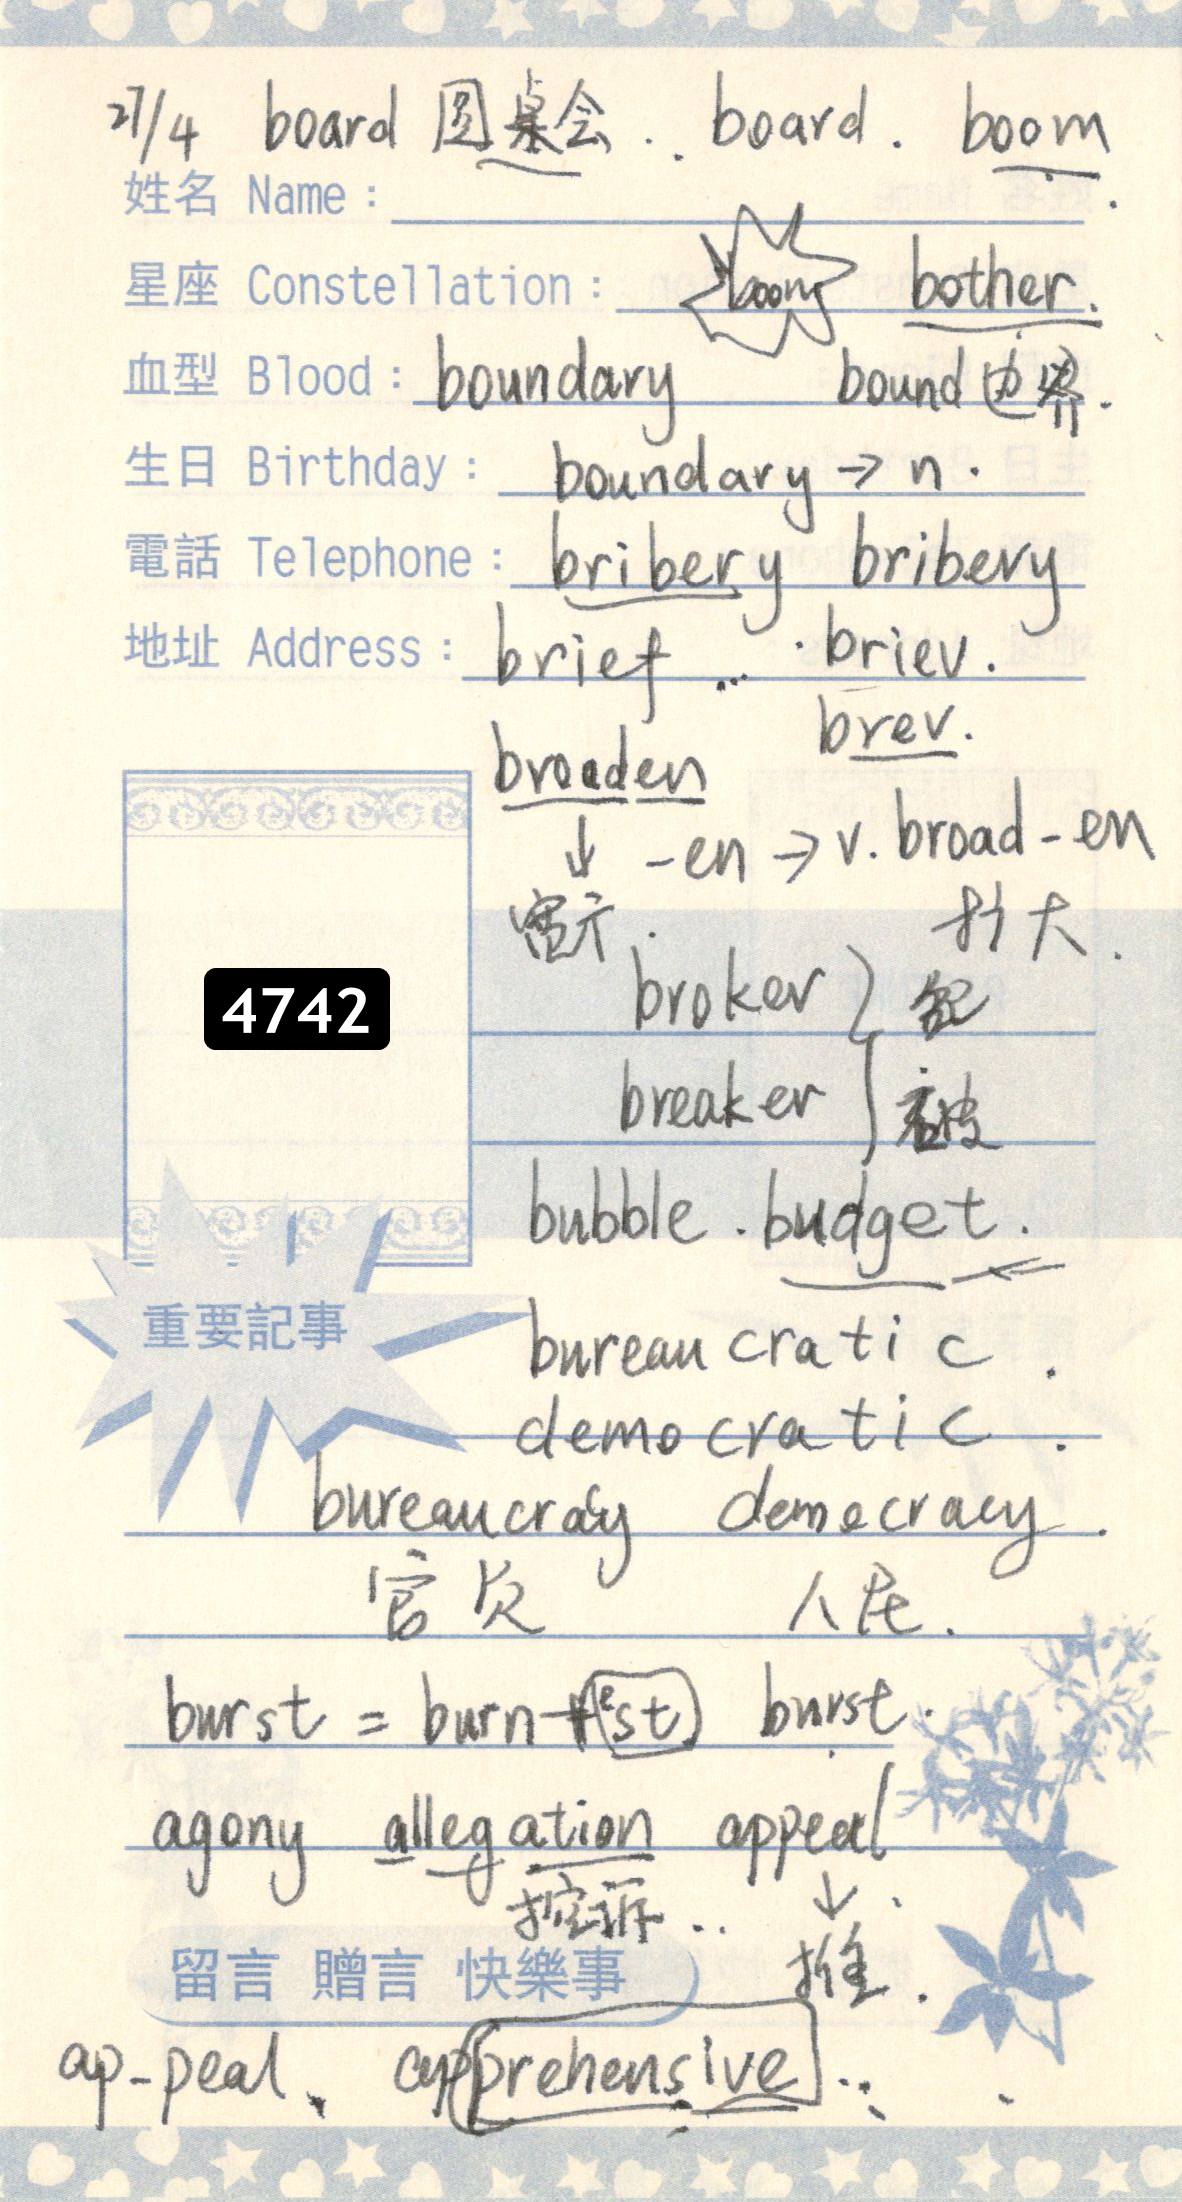 27/4 board 圆桌会 . . board . boom
姓名 Name :
星座 Constellation : boom bother.
血型 Blood : boundary bound 边界.
生日 Birthday : boundary → n .
電話 Telephone : bribery bribery
地址 Address : brief ... . briev.
brev.
broaden
↓ -en → v. broad-en
扩大.
broker
4742
breaker 破
bubble . budget.
重要記事
bureaucratic .
democratic .
bureaucracy democracy .
官员 人民.
burst = burn+(est) burst.
agony allegation appeal
控诉 .. ↓ .
留言 贈言 快樂事 推 .
ap-peal、 apprehensive ..